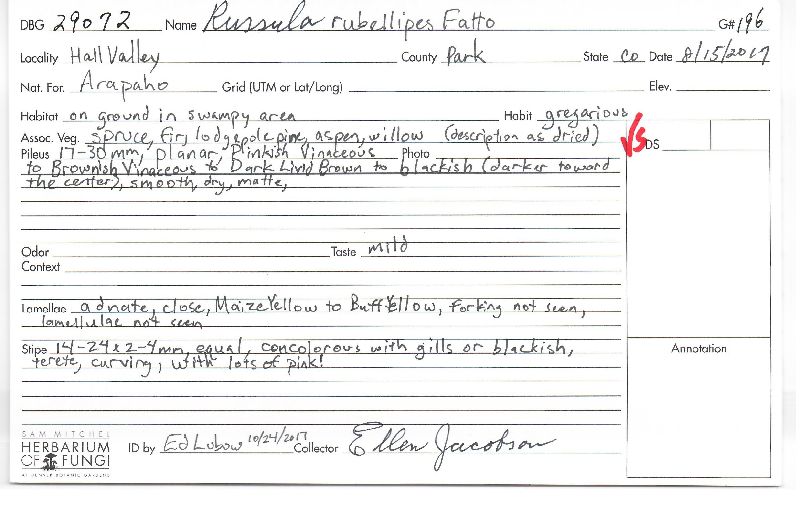 DBG 29072 Name Russula rubellipes Fatto G# 196
Locality Hall Valley County Park State CO Date 8/15/2017
Nat. For. Arapaho Grid (UTM or Lat/Long) Elev.
Habitat on ground in swampy area Habit gregarious
Assoc. Veg. spruce, fir, lodgepole pine, aspen, willow (description as dried) VS DS
Pileus 17-30 mm, planar, Pinkish Vinaceous Photo
to Brownish Vinaceous to Dark Livid Brown to blackish (darker toward
the center), smooth, dry, matte,
Odor Taste mild
Context
Lamellae adnate, close, Maize Yellow to Buff Yellow, forking not seen,
lamellulae not seen
Stipe 14-24 x 2-4 mm, equal, concolorous with gills or blackish,
terete, curving, with lots of pink!
Annotation
SAM MITCHEL
HERBARIUM
OF FUNGI
AT DENVER BOTANIC GARDENS
ID by Ed Lubow 10/24/2017 Collector Ellen Jacobson